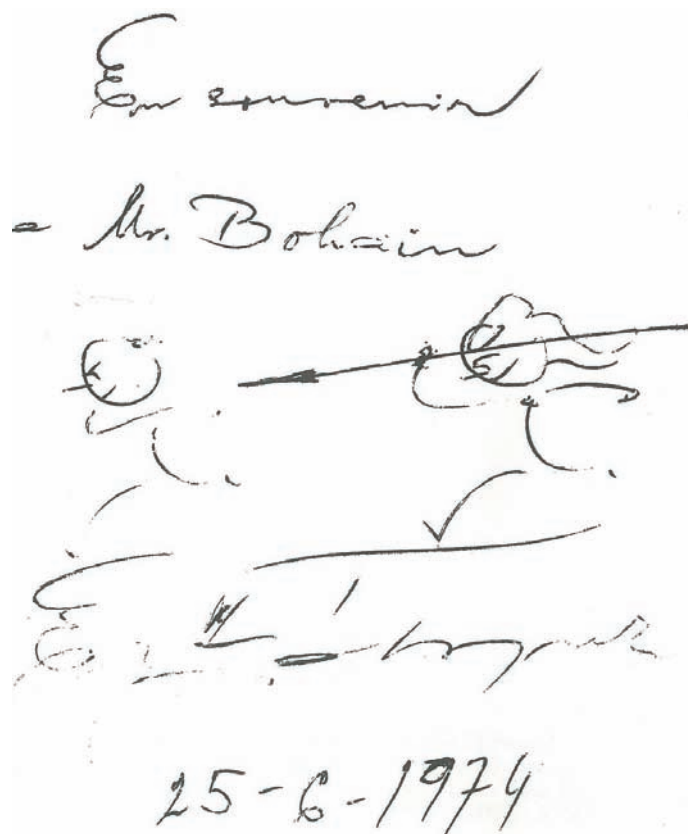 En souvenir
a Mr. Bohain
25-6-1974